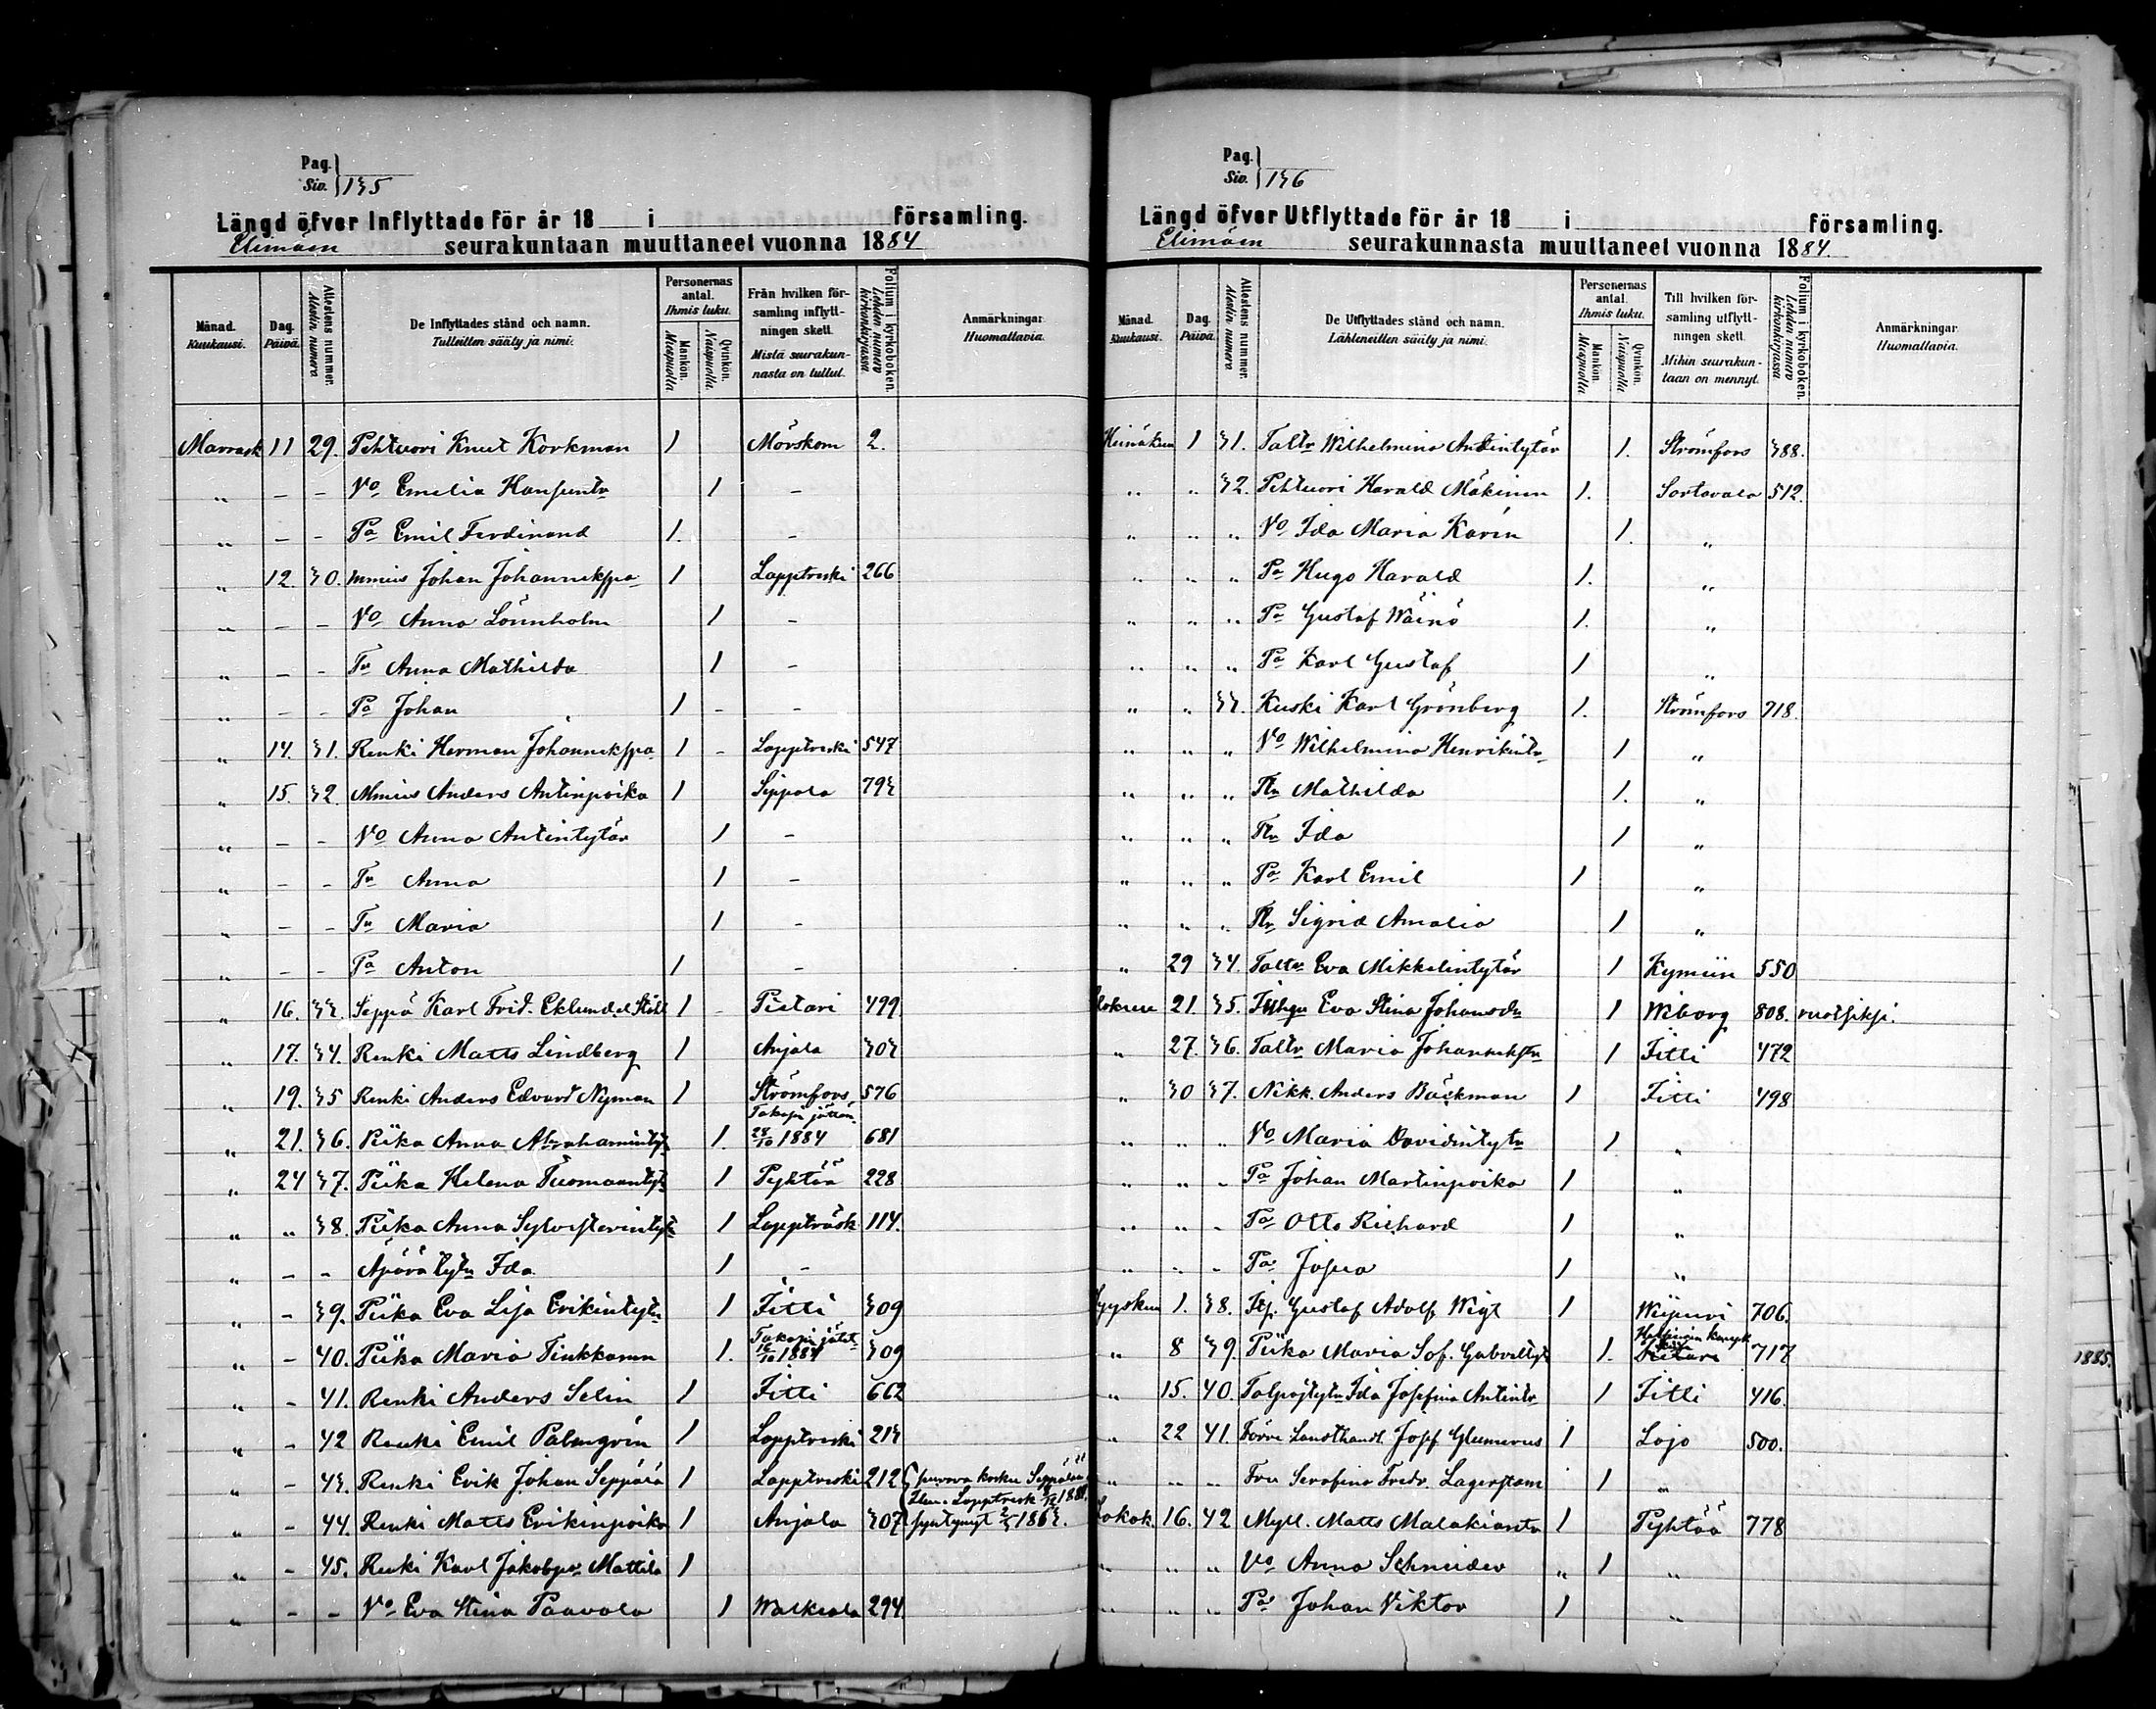 Pag.
Siv. 135
Längd öfver Inflyttade för år 18 i församling.
Elimäen seurakuntaan muuttaneet vuonna 1884
Månad. Kuukausi. Dag. Päivä. Attestens nummer. Alestin numero De Inflyttades stånd och namn. Tulleitten sääty ja nimi. Personernas antal. Ihmis luku. Mankön. Miespuolia Qvinkön. Naispuolia. Från hvilken församling inflyttningen skett. Mistä seurakunnasta on tullut. Folium i kyrkoboken. Lehden numero kirkonkirjassa Anmärkningar. Huomattavia.
Marrask 11 29. Pehtuori Knut Korkman 1 Mörskom 2.
" – – Vo Emelia Hansuntr 1 –
" – – Pa Emil Ferdinand 1. –
" 12. 30. Mmies Johan Johanneksspa 1 Lapptreski 266
" – – Vo Anna Lönnholm 1 –
" – – Tr Anna Mathilda 1 –
" – – Pa Johan 1 – –
" 14. 31. Renki Herman Johanneksspa 1 – Lapptreski 547
" 15. 32. Mmies Anders Antinpoika 1 Sippola 793
" – – Vo Anna Antintytär 1 –
" – – Tr Anna 1 –
" – – Tr Maria 1 –
" – – Pa Anton 1 –
" 16. 33. Seppä Karl Frid. Eklund 1 – Pietari 499
" 17. 34. Renki Matts Lindberg 1 Anjala 303
" 19. 35 Renki Anders Edvard Nyman 1 Strömfors 576
" 21. 36. Piika Anna Abrahamintyt 1. Takasin jättän 28/10 1884 681
" 24 37. Piika Helena Tuomaantyt 1 Pyhtää 228
" " 38. Piika Anna Sylvesterintyt 1 Lappträsk 114.
" – – Äpärä tytr Ida 1 –
" – 39. Piika Eva Lisa Erikintytr 1 Iitti 309
" – 40. Piika Maria Tinkkanen 1. Takasin jätet 16/10 1884 309
" – 41. Renki Anders Selin 1 Iitti 662
" – 42 Renki Emil Palmgrén 1 Lapptreski 213
" – 43. Renki Erik Johan Seppälä 1 Lapptreski 212
" – 44. Renki Matts Erikinpoika 1 Anjala 307 syntynyt
" – 45. Renki Karl Jakobpr Mattila 1
" – – Vo Eva Stina Paavola 1 Walkeala 294
Pag.
Siv. 136
Längd öfver Utflyttade för år 18 i församling.
Elimäen seurakunnasta muuttaneet vuonna 1884.
Månad. Kuukausi. Dag. Päivä. Attestens nummer. Alestin numero De Utflyttades stånd och namn. Lähteneitten sääty ja nimi. Personernas antal. Ihmis luku. Mankön. Miespuolia Qvinkön. Naispuolia Till hvilken församling utflyttningen skett. Mihin seurakuntaan on mennyt. Folium i kyrkoboken. Lehden numero kirkonkirjassa Anmärkningar. Huomattavia.
Heinäkuu 1 31. Taltr Wilhelmina Antintytär 1. Strömfors 388.
" " 32. Pehtuori Harald Mäkinen 1. Sortavala 512.
" " " Vo Ida Maria Karén 1. "
" " " Pa Hugo Harald 1. "
" " " Pa Gustaf Wäinö 1. "
" " " Pa Karl Gustaf 1 "
" " 33. Kuski Karl Grönberg 1. Strömfors 718.
" " " Vo Wilhelmina Henrikintr 1 "
" " " Tr Mathilda 1. "
" " " Tr Ida 1 "
" " " Pa Karl Emil 1 "
" " " Tr Sigrid Amalia 1 "
" 29 34. Taltr Eva Mikkelintytär 1 Kymiin 550
Elokuu 21. 35. Eva Stina Johansdr 1 Wiborg 808. ruotsiksi.
" 27. 36. Taltr Maria Johanneksstr 1 Iitti 472
" 30 37. Nikk. Anders Bäckman 1 Iitti 498
" " " Vo Maria Davidintytr 1 "
" " " Pa Johan Martinpoika 1 "
" " " Pa Otto Richard 1 "
" " " Pa Josua 1 "
Syyskuu 1. 38. Gustaf Adolf Wigt 1 Wiipuri 706.
" 8 39. Piika Maria Sof. Gabrelstyt 1. Pietari 717
" 15. 40. Talpojtytr Ida Josefina Antintr 1 Iitti 416.
" 22 41. Förre Landthandl. Josef Glumerus 1 Lojo 500.
" " " Fru Serafina Fredr. Lagerstam 1 "
Lokak. 16. 42 Myll. Matts Malakianta 1 Pyhtää 778
" " " Vo Anna Schneider " 1 "
" " " Pa Johan Viktor 1 "
1885.